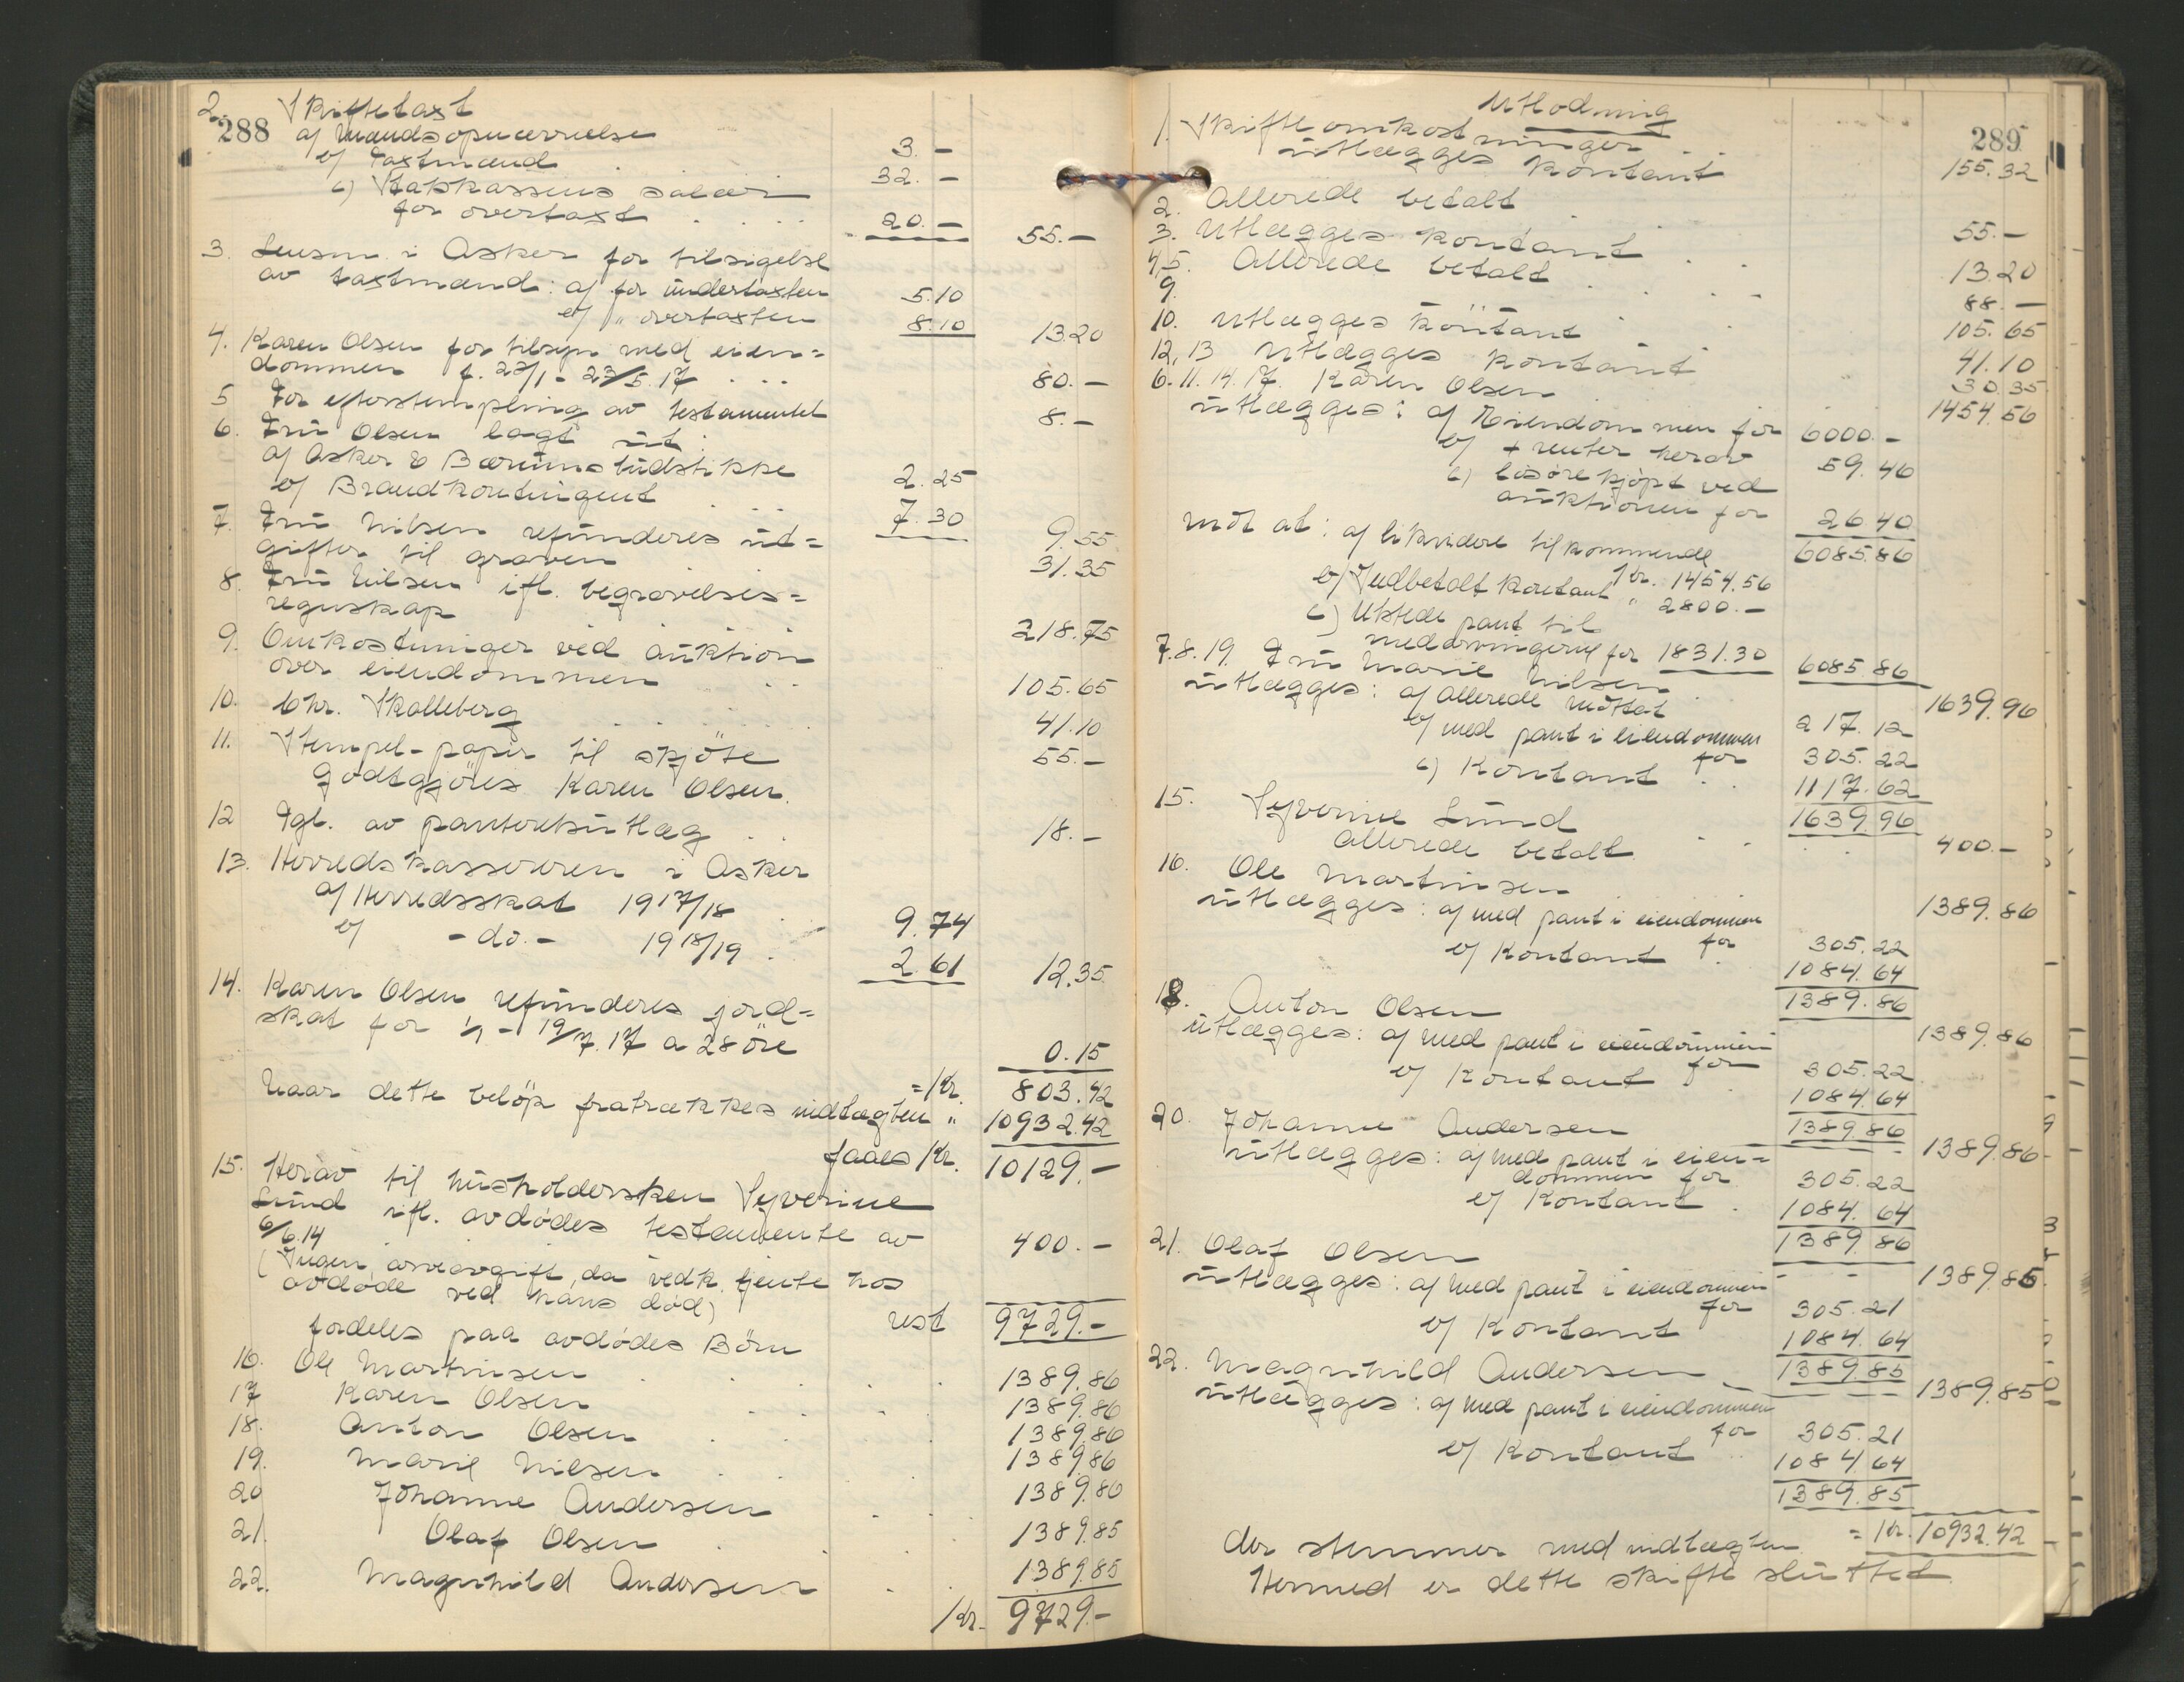 288
2. Skiftetakst
a/ Mændsopnævnelse 3.-
b/ Takstmænd 32.-
c) Statskassens salær
for overtakst 20.- 55.-
3. Lensm. i Asker for tilsigelse
av takstmænd: a/ for undertaksten 5.10
b/ " overtaksten 8.10 13.20
4. Karen Olsen for tilsyn med eien=
dommen f. 23/1 - 23/5.17 80.-
5 For efterstempling av testamentet 8.-
6. Fru Olsen lagt ut
a/ Asker & Bærums Budstikke 2.25
b/ Brandkontingent 7.30 9.55
7. Fru Nilsen refunderes ut=
gifter til graven 31.35
8. Fru Nilsen ifl. begravelses=
regnskap 218.75
9. Omkostninger ved auktion
over eiendommen 105.65
10. Chr. Skalleberg 41.10
11. Stempel-papir til skjöte 55.-
godtgjöres Karen Olsen.
12 Tgl. av panteretsutlæg 18.-
13. Herredskassereren i Asker
a/ Herredsskat 1917/18 9.74
b/ -do.- 1918/19 2.61 12.35
14. Karen Olsen refunderes jord=
skat for 1/1 - 19/7.17 a 28 öre 0.15
=Kr. 803.42
Naar dette belöp fratrækkes indtægten " 10932.42
faaes Kr. 10129.-
15. Herav til husholdersken Syverine
Lund ifl. avdødes testamente av
6/6.14 400.-
(Ingen arveavgift, da vedk. tjente hos
avdøde ved hans død)
rest 9729.-
fordeles paa avdødes Börn
16. Ole Martinsen 1389.86
17 Karen Olsen 1389.86
18. Anton Olsen 1389.86
19. Marie Nilsen 1389.86
20 Johanne Andersen 1389.86
21. Olaf Olsen 1389.85
22. Magnhild Andersen 1389.85
Kr. 9729.-
289
Utlodning
1. Skifteomkostninger
utlægges kontant 155.32
2. Allerede betalt 55.-
3. Utlægges kontant 13.20
4,5. Allerede betalt 88.-
9. 105.65
10. Utlægges kontant 41.10
12, 13 Utlægges kontant 30.35
6.11.14.17. Karen Olsen 1454.56
utlægges: a/ Eiendommen for 6000.-
b/ + renter herav 59.46
c) løsøre kjöpt ved
auktionen for 26.40
6085.86
mot at: a/ likvidere tilkommende
Kr. 1454.56
b/ Indbetalt kontant " 2800.-
c) Utstede pant til
medarvingerne for 1831.30 6085.86
7.8.19. Fru Marie Nilsen 1639.96
utlægges: a/ allerede mottat 217.12
b/ med pant i eiendommen
for 305.22
c) Kontant 1117.62
1639.96
15. Syverine Lund
allerede betalt 400.-
16. Ole Martinsen 1389.86
utlægges: a/ med pant i eiendommen
for 305.22
b/ Kontant 1084.64
1389.86
18. Anton Olsen 1389.86
utlægges: a/ med pant i eiendommen
for 305.22
b/ Kontant 1084.64
1389.86
20. Johanne Andersen 1389.86
utlægges: a/ med pant i eien=
dommen for 305.22
b/ Kontant 1084.64
1389.86
21. Olaf Olsen 1389.85
utlægges: a/ med pant i eiendommen
for 305.21
b/ Kontant 1084.64
1389.85
22. Magnhild Andersen 1389.85
utlægges: a/ med pant i eiendommen
for 305.21
b/ Kontant 1084.64
1389.85
= Kr. 10932.42
der stemmer med indtægten
Hermed er dette skifte sluttet.